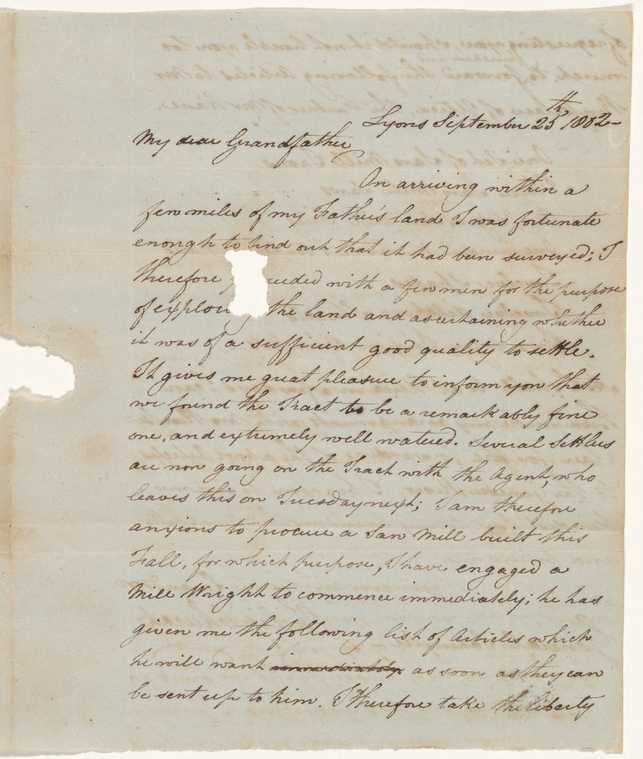 Lyons September 25th, 1802-
My dear Grandfather
On arriving within a
few miles of my Father's land I was fortunate
enough to find out that it had been surveyed; I
therefore p ceeded with a few men for the purpose
of explori the land and ascertaining whether
it was of a sufficient good quality to settle.
It gives me great pleasure to inform you that
we found the Tract to be a remarkably fine
one, and extremely well watered. Several Settlers
are now going on the Tract with the Agent, who
leaves this on Tuesday next; I am therefore
anxious to procure a Saw Mill built this
Fall, for which purpose, I have engaged a
Mill Wright to commence immediately; he has
given me the following list of Articles which
he will want immediately as soon as they can
be sent up to him. I therefore take the liberty